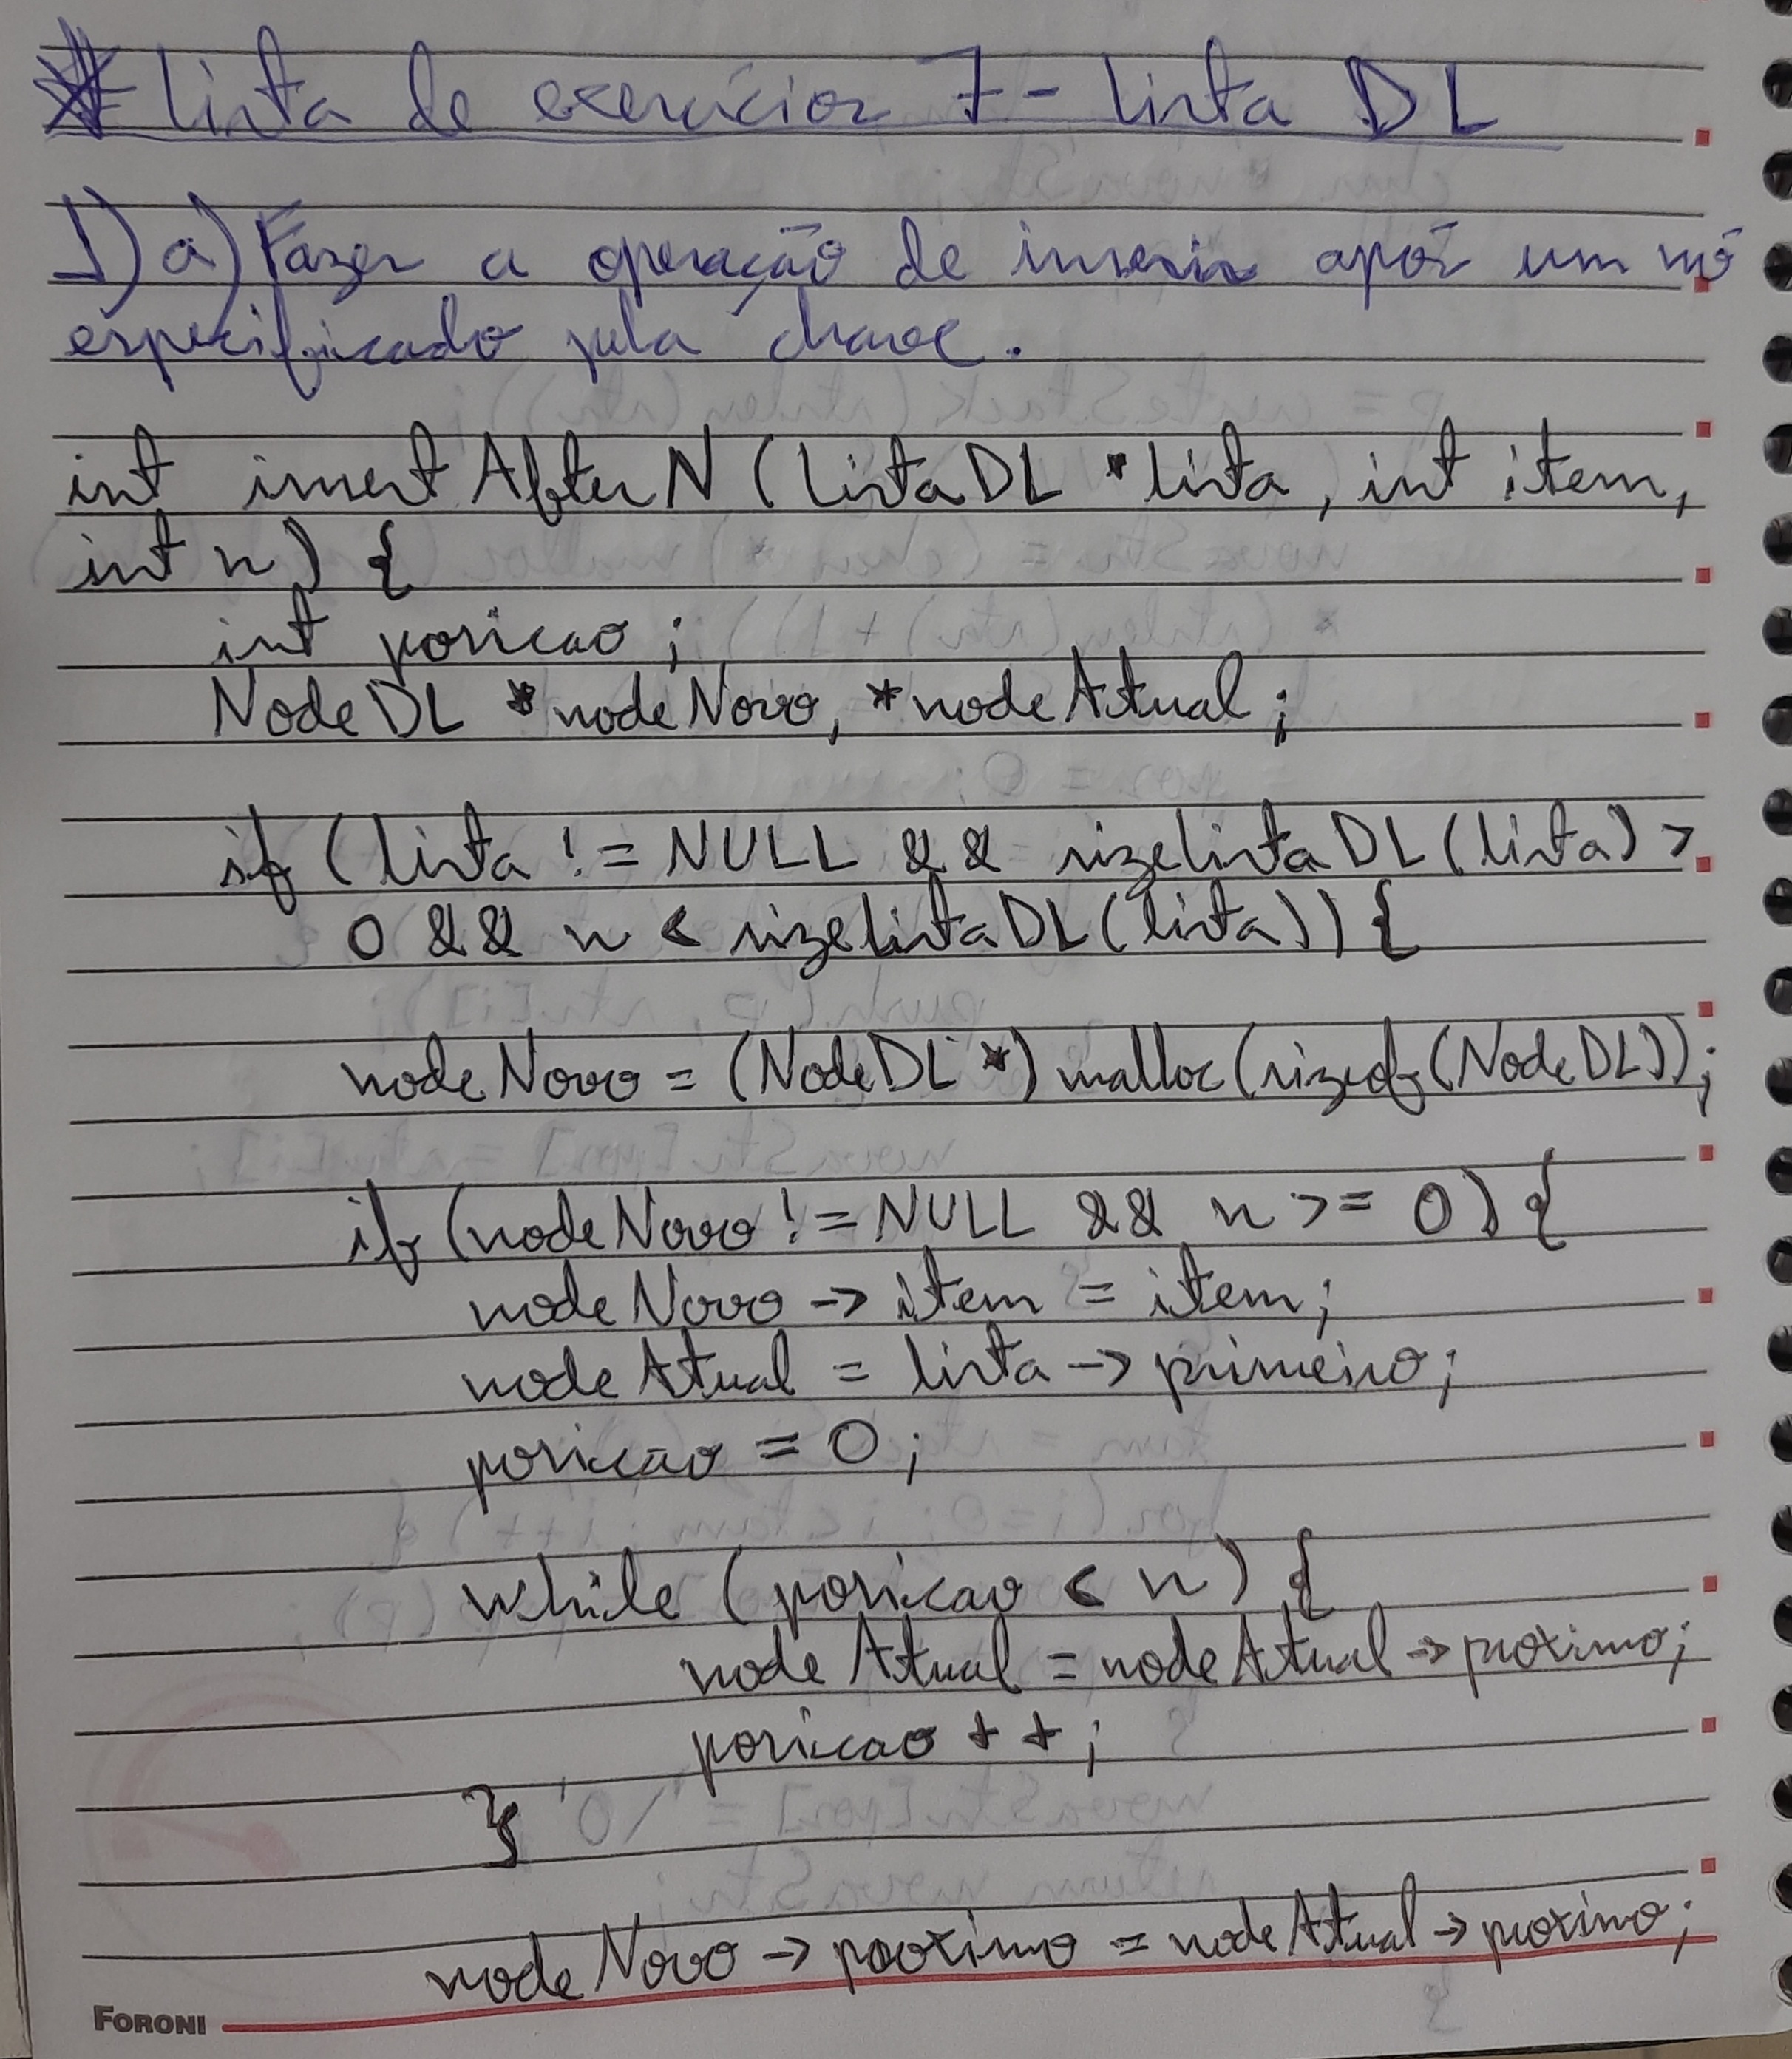 * Lista de exercícios 7 - Lista DL
1) a) Fazer a operação de inserir após um nó
especificado pela chave.
int insertAfterN (ListaDL *lista, int item,
int n) {
int posicao;
NodeDL *nodeNovo, *nodeAtual;
if (lista != NULL && sizelistaDL(lista) >
0 && n < sizelistaDL(lista)) {
nodeNovo = (NodeDL *) malloc(sizeof(NodeDL));
if (nodeNovo != NULL && n >= 0) {
nodeNovo -> item = item;
nodeAtual = lista -> primeiro;
posição = 0;
while (posicao < n) {
nodeAtual = nodeAtual -> proximo;
posicao ++;
}
nodeNovo -> proximo = nodeAtual -> proximo;
FORONI